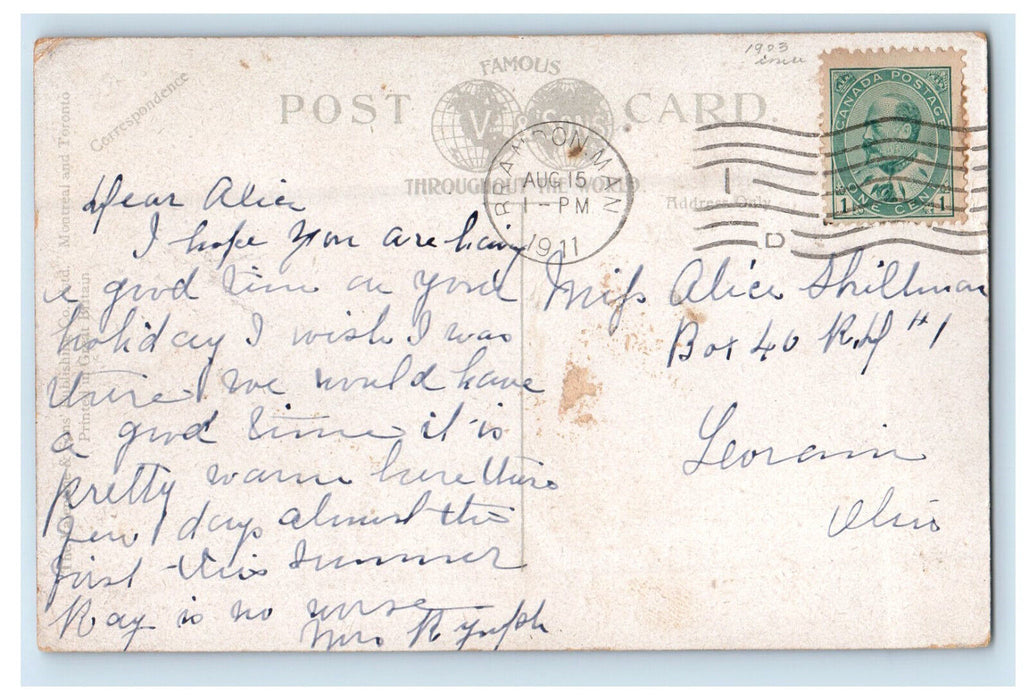 1903
issue
FAMOUS
POST CARD.
V. & SONS
THROUGHOUT THE WORLD
Correspondence
Address Only
BRANDON MAN
AUG 15
1-PM
1911
CANADA POSTAGE
1 ONE CENT 1
Dear Alice
I hope you are having
a good time on your
holiday I wish I was
there we would have
a good time it is
pretty warm here these
few days almost the
first this summer
Ray is no worse
Mrs
Miss Alice Shillman
Box 40 R.D #1
Leorain
Ohio
Ltd. Montreal and Toronto
Printed in Great Britain